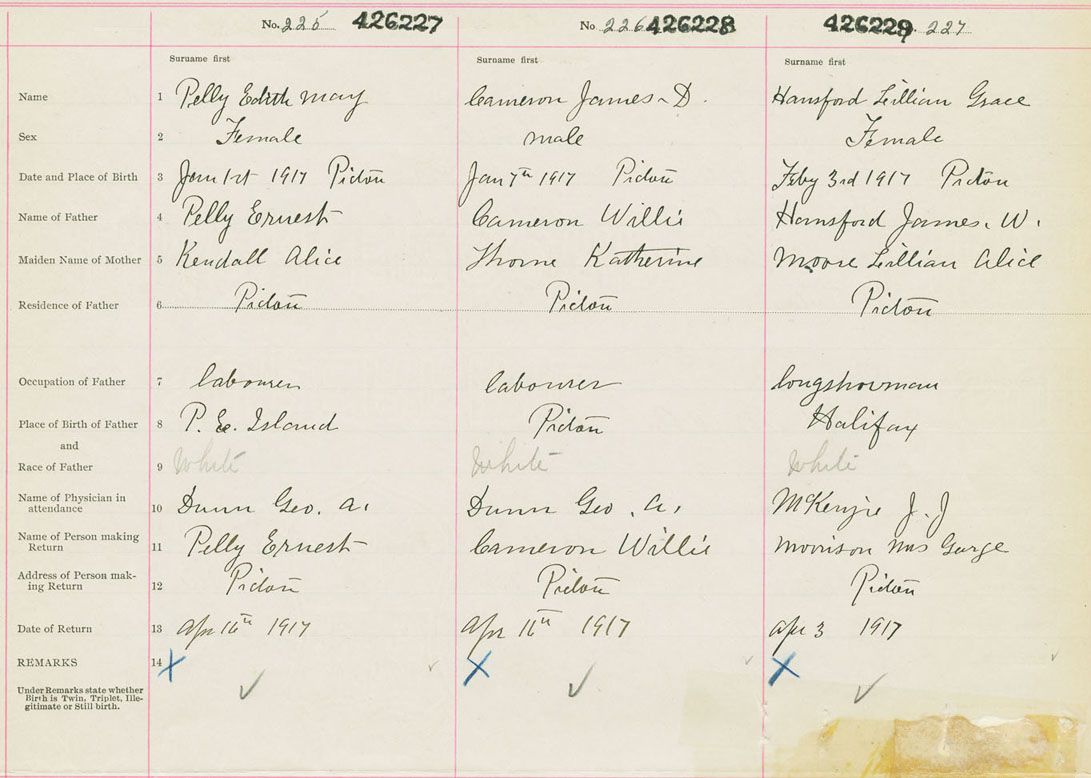 No. 225 426227 No 226 426228 426229 227
Surname first Surname first Surname first
Name 1 Pelly Edith May Cameron James D. Hansford Lillian Grace
Sex 2 Female male Female
Date and Place of Birth 3 Jan 1st 1917 Pictou Jan 7th 1917 Pictou Feby 3rd 1917 Pictou
Name of Father 4 Pelly Ernest Cameron Willis Hansford James. W.
Maiden Name of Mother 5 Kendall Alice Thorne Katherine Moore Lillian Alice
Residence of Father 6 Pictou Pictou Pictou
Occupation of Father 7 labourer labourer longshorman
Place of Birth of Father 8 P. E. Island Pictou Halifax
and
Race of Father 9 White White White
Name of Physician in
attendance 10 Dunn Geo. A. Dunn Geo. A. McKenzie J. J
Name of Person making
Return 11 Pelly Ernest Cameron Willis Morrison Mrs George
Address of Person mak-
ing Return 12 Pictou Pictou Pictou
Date of Return 13 Apr 16th 1917 Apr 16th 1917 Apr 3 1917
REMARKS 14 X X X
Under Remarks state whether
Birth is Twin, Triplet, Ille-
gitimate or Still birth.